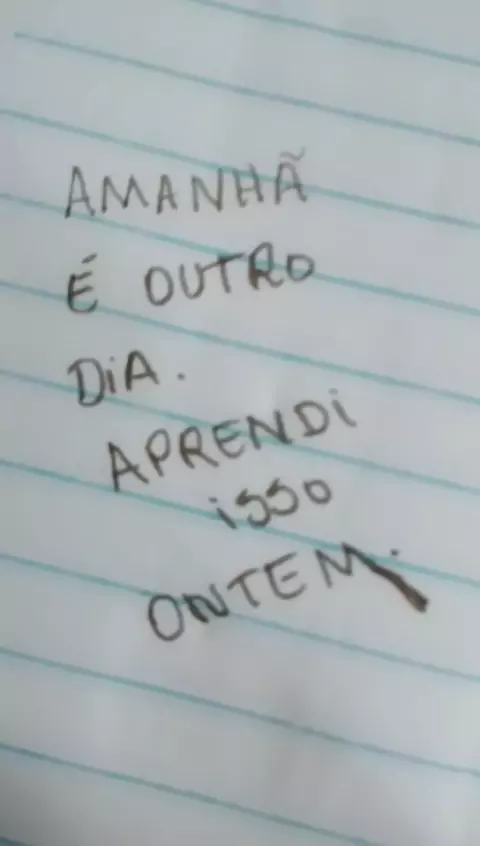 AMANHÃ
É OUTRO
DiA.
APRENDi
isso
ONTEM.